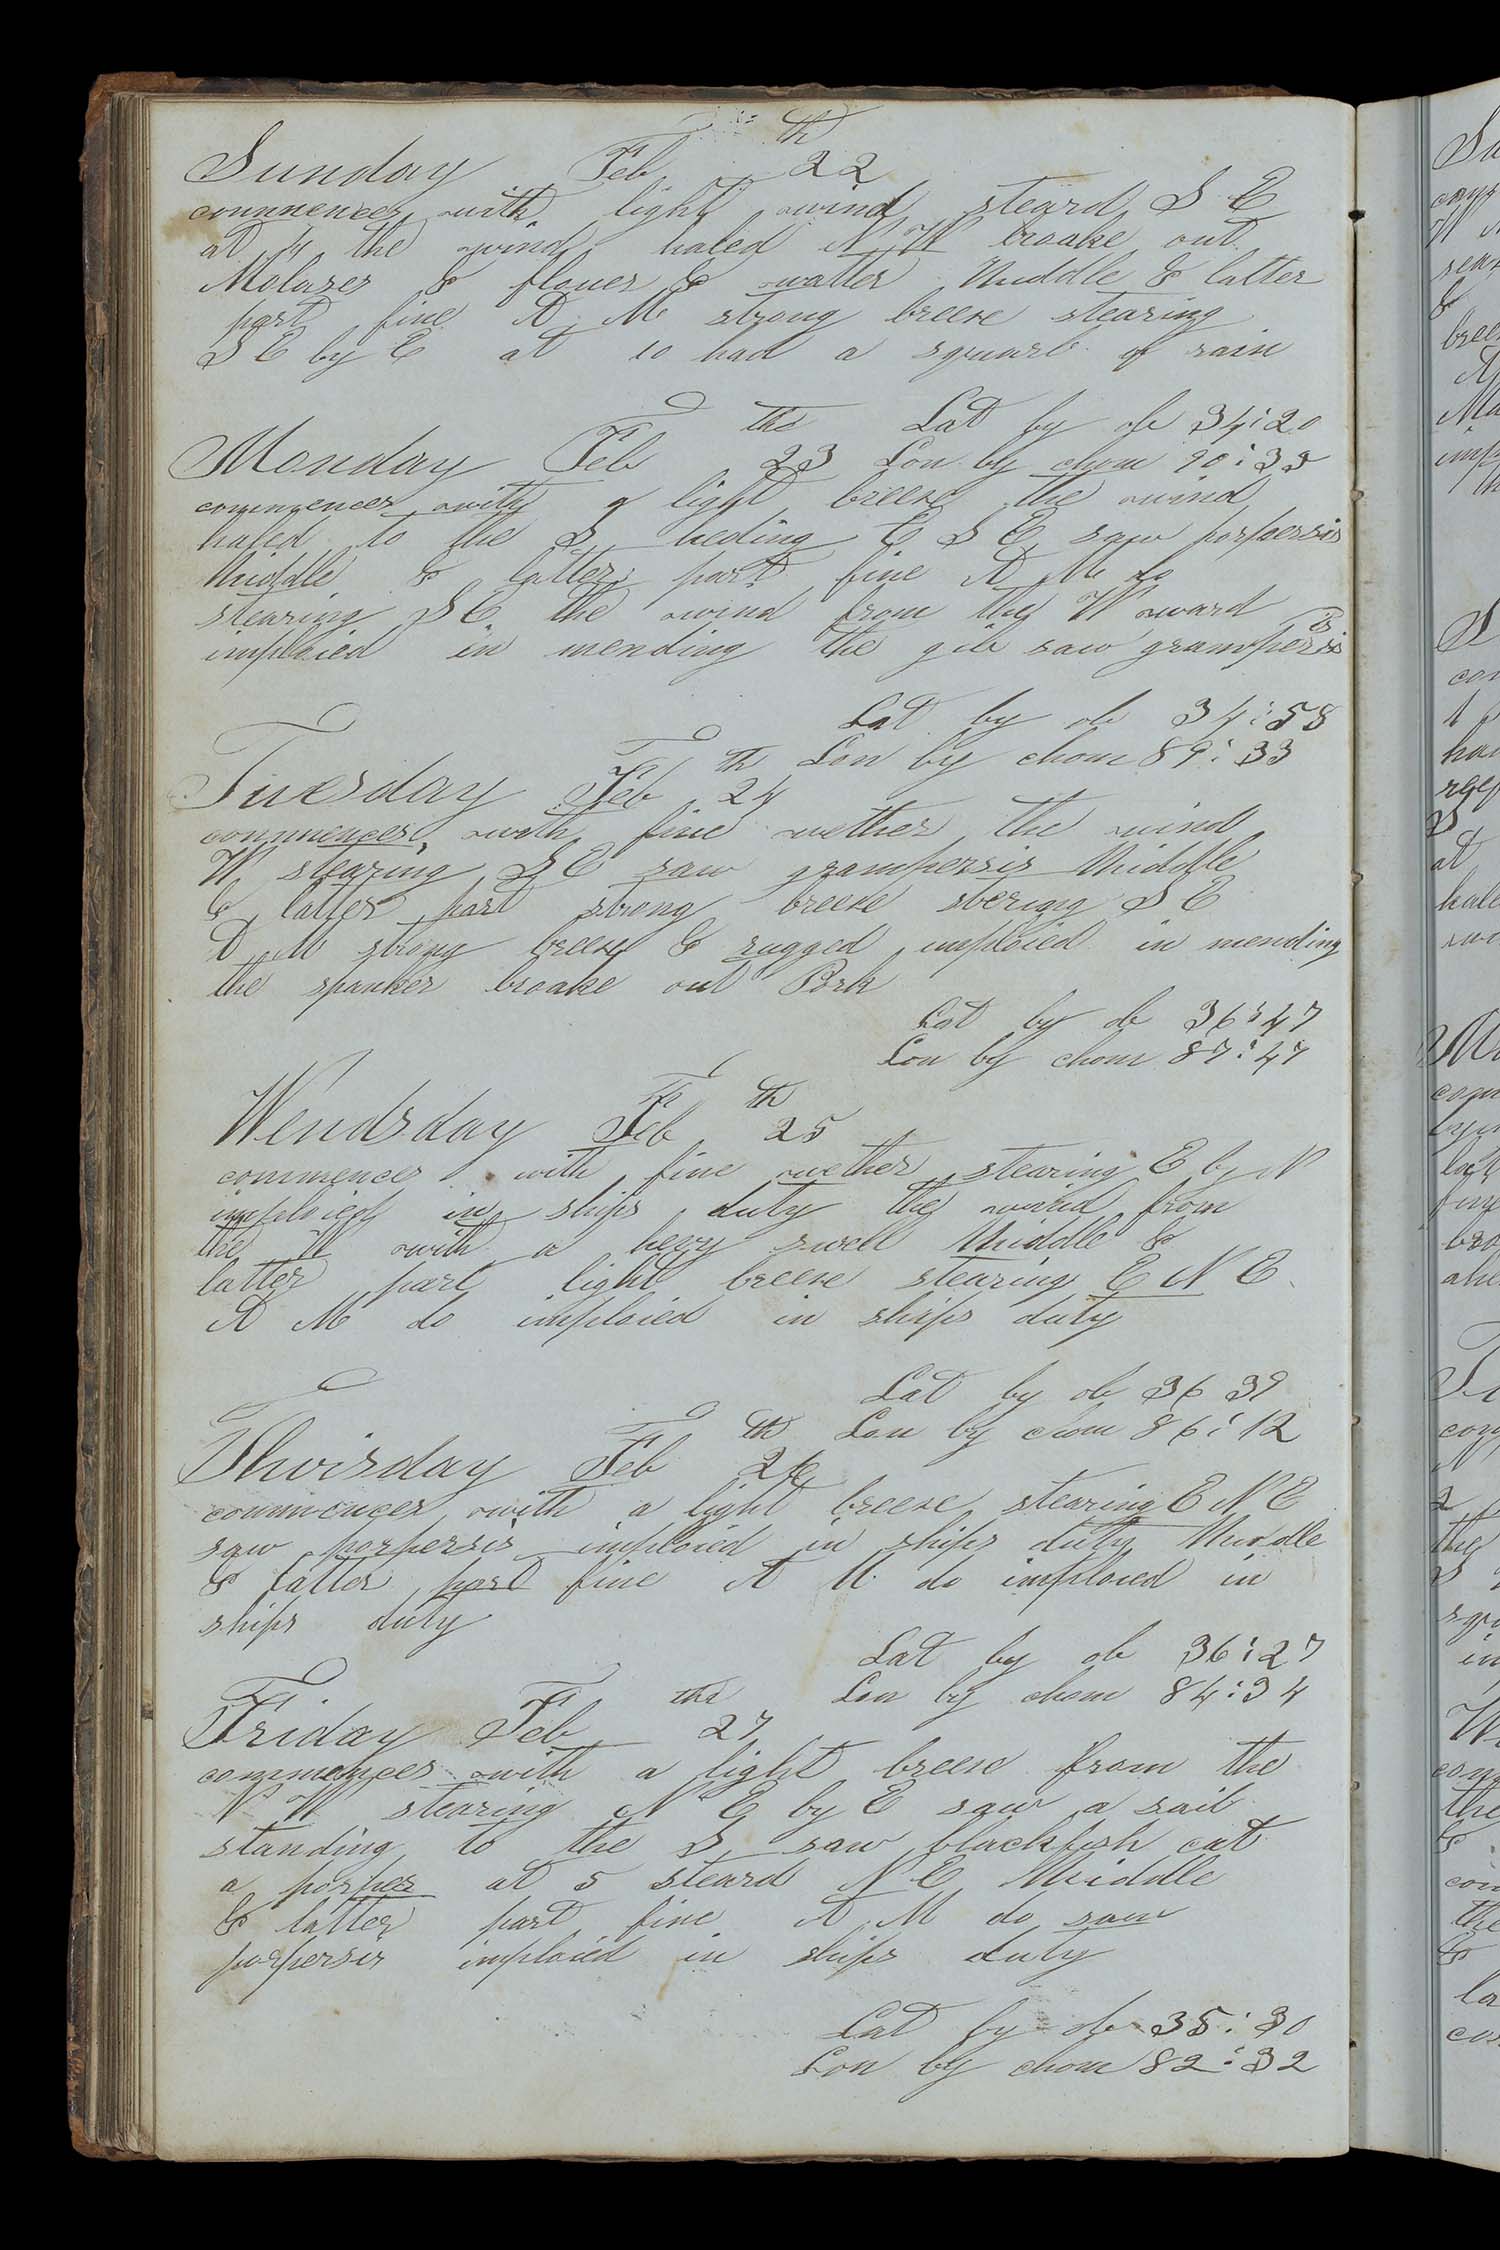 Sunday Feb 22th
commences with light wind steard S E
at 4 the wind haled N W broake out
Molases & flouer & watter Middle & latter
part fine A M strong breese stearing
S E by E at 10 had a squarl of rain
Lat by ob 34:20
Monday Feb 23ths Lon by chom 90:33
commences with a light breese the wind
haled to the S heding E S E saw porpersis
Middle & latter part fine A M do
stearing S E the wind from the W ward
imploied in mending the gib saw grampersis
Lat by ob 34:58
Lon by chom 89:33
Tuesday Feb 24th
commences with fine wether the wind
W stearing S E saw grampersis Middle
& latter part strong breese stering S E
A M strong breese & rugged imploied in mending
the spanker broake out Pork
Lat by ob 36:47
Lon by chom 87:47
Wendsday Feb 25th
commences with fine wether stearing E by N
imploied in ships duty the wind from
the W with a hevy swell Middle &
latter part light breese stearing E N E
A M do imploied in ships duty
Lat by ob 36 39
Lon by chom 86:12
Thuirsday Feb 26th
commences with a light breese stearing E N E
saw porpersis imploied in ships duty Middle
& latter part fine A M do imploied in
ships duty
Lat by ob 36:27
Lon by chom 84:34
Friday Feb 27ths
commences with a light breese from the
N W stearing N E by E saw a sail
standing to the S saw blackfish cat
a porper at 5 steard N E Middle
& latter part fine A M do saw
porpersis imploied in ships duty
Lat by ob 35:30
Lon by chom 82:32